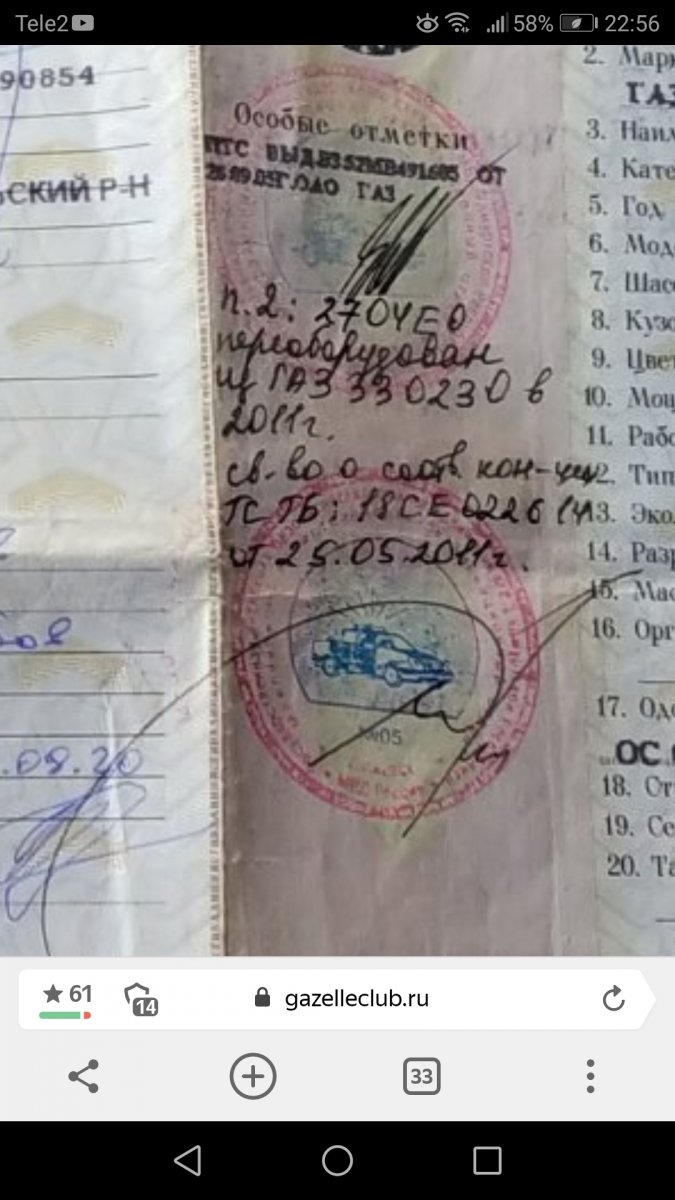 Tele2
58%
22:56
90854
СКИЙ Р-Н
.09.20
Особые отметки
ПТС ВЫД.
ОТ
ОАО ГАЗ
п.2: 2704Е0
переоборудован
из ГАЗ 330230 в
2011г.
св-во о соотв. кон-ции
ТС ТБ: 18СЕ
от 25.05.2011г.
№05
2. Марк
ГАЗ
3. Наим
4. Кате
5. Год
6. Мод
7. Шасс
8. Кузо
9. Цвет
10. Мощ
11. Рабо
2. Тип
13. Экол
14. Разр
15. Мас
16. Орг
17. Одо
ОС
18. Ст
19. Се
20. Та
61
14
gazelleclub.ru
33